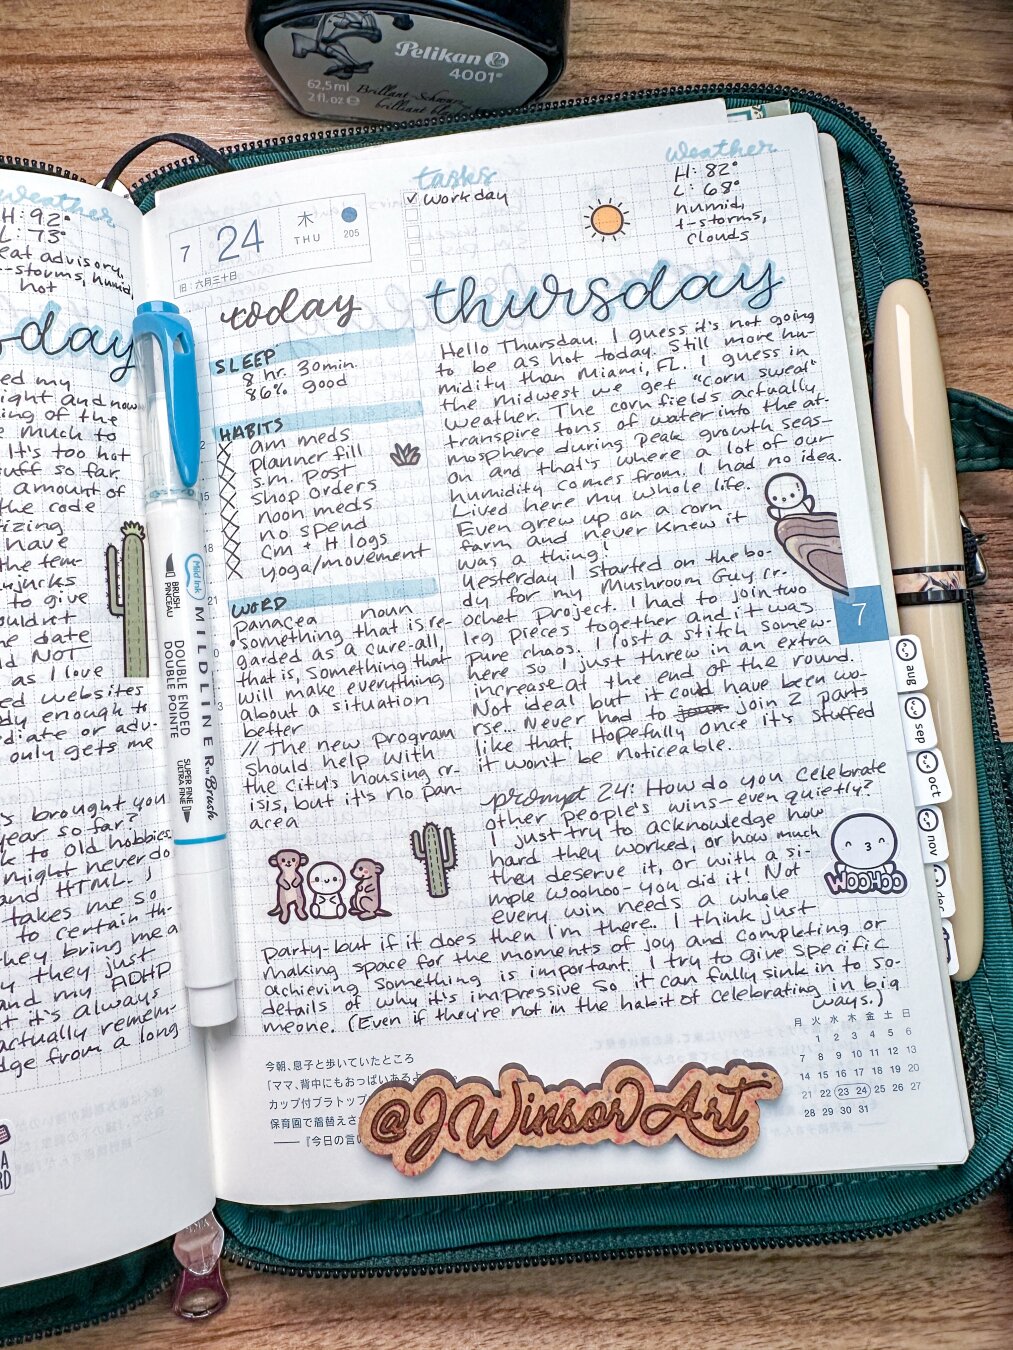 Pelikan
4001®
62,5 ml
2 fl. oz
Brillant-Schwarz
brilliant black
weather
H: 92°
L: 73°
eat advisory,
t-storms, humid,
hot
day
ed my
ight and now
ing of the
e much to
It's too hot
uff so far.
amount of
the code
izing
have
the tem-
yjucks
to give
ouldn't
he date
ld NOT
as I love
ed websites
dy enough to
ediate or adv-
only gets me
s brought you
year so far?
k to old hobbies
might never do
and HTML. I
takes me so
to certain th-
hey bring me a
y they just
and my ADHD
t it's always
actually remem-
dge from a long
Mildlink
BRUSH
PINCEAU
MILDLINER™ Brush
DOUBLE ENDED
DOUBLE POINTE
SUPER FINE
ULTRA FINE
7
24
木
THU
205
旧・六月三十日
tasks
✓ work day
weather
H: 82°
L: 68°
humid,
t-storms,
clouds
today
SLEEP
8 hr. 30min.
86% good
HABITS
am meds
planner fill
s.m. post
shop orders
noon meds
no spend
cm + H logs
yoga/movement
WORD
panacea noun
• something that is re-
garded as a cure-all,
that is, something that
will make everything
about a situation
better
// The new program
should help with
the city's housing cr-
isis, but it's no pan-
acea
thursday
Hello Thursday. I guess it's not going
to be as hot today. Still more hu-
midity than Miami, FL. I guess in
the midwest we get "corn sweat"
weather. The corn fields actually
transpire tons of water into the at-
mosphere during peak growth seas-
on and that's where a lot of our
humidity comes from. I had no idea.
Lived here my whole life.
Even grew up on a corn
farm and never knew it
was a thing!
Yesterday I started on the bo-
dy for my Mushroom Guy cr-
ochet project. I had to join two
leg pieces together and it was
pure chaos. I lost a stitch somew-
here so I just threw in an extra
increase at the end of the round.
Not ideal but it could have been wo-
rse... Never had to join 2 parts
like that. Hopefully once it's stuffed
it won't be noticeable.
prompt 24: How do you celebrate
other people's wins—even quietly?
I just try to acknowledge how
hard they worked, or how much
they deserve it, or with a si-
mple woohoo- you did it! Not
every win needs a whole
party- but if it does then I'm there.. I think just
making space for the moments of joy and completing or
achieving something is important. I try to give specific
details of why it's impressive so it can fully sink in to so-
meone. (Even if they're not in the habit of celebrating in big
ways.)
WOOHOO
7
aug
sep
oct
nov
dec
今朝、息子と歩いていたところ
「ママ、背中にもおっぱいあるよ
カップ付ブラトップ
保育園で着替えさ
——『今日の言い
月 火 水 木 金 土 日
1 2 3 4 5 6
7 8 9 10 11 12 13
14 15 16 17 18 19 20
21 22 23 24 25 26 27
28 29 30 31
@JWinsorArt